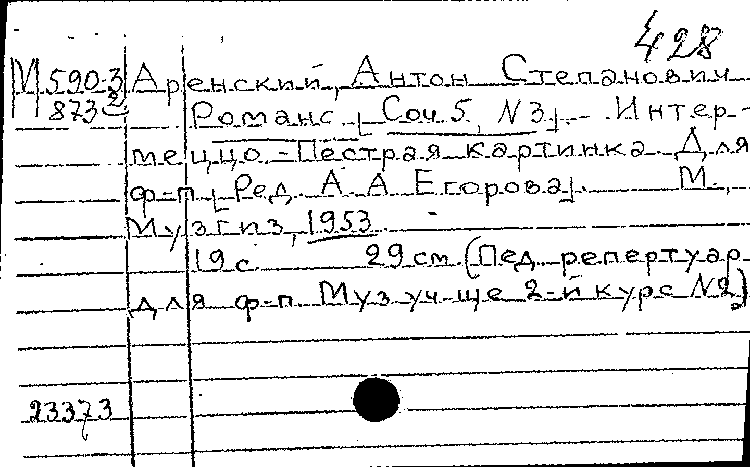 428
М 590-3 Аренский, Антон Степанович
873 2 Романс [Соч. 5, N3]. - Интер-
меццо. - Пестрая картинка. Для
ф-п. [Ред. А. А. Егорова]. М.,
Музгиз, 1953.
19 с. 29 см. (Пед. репертуар
для ф-п. Муз. уч-ще 2-й курс N2)
23373